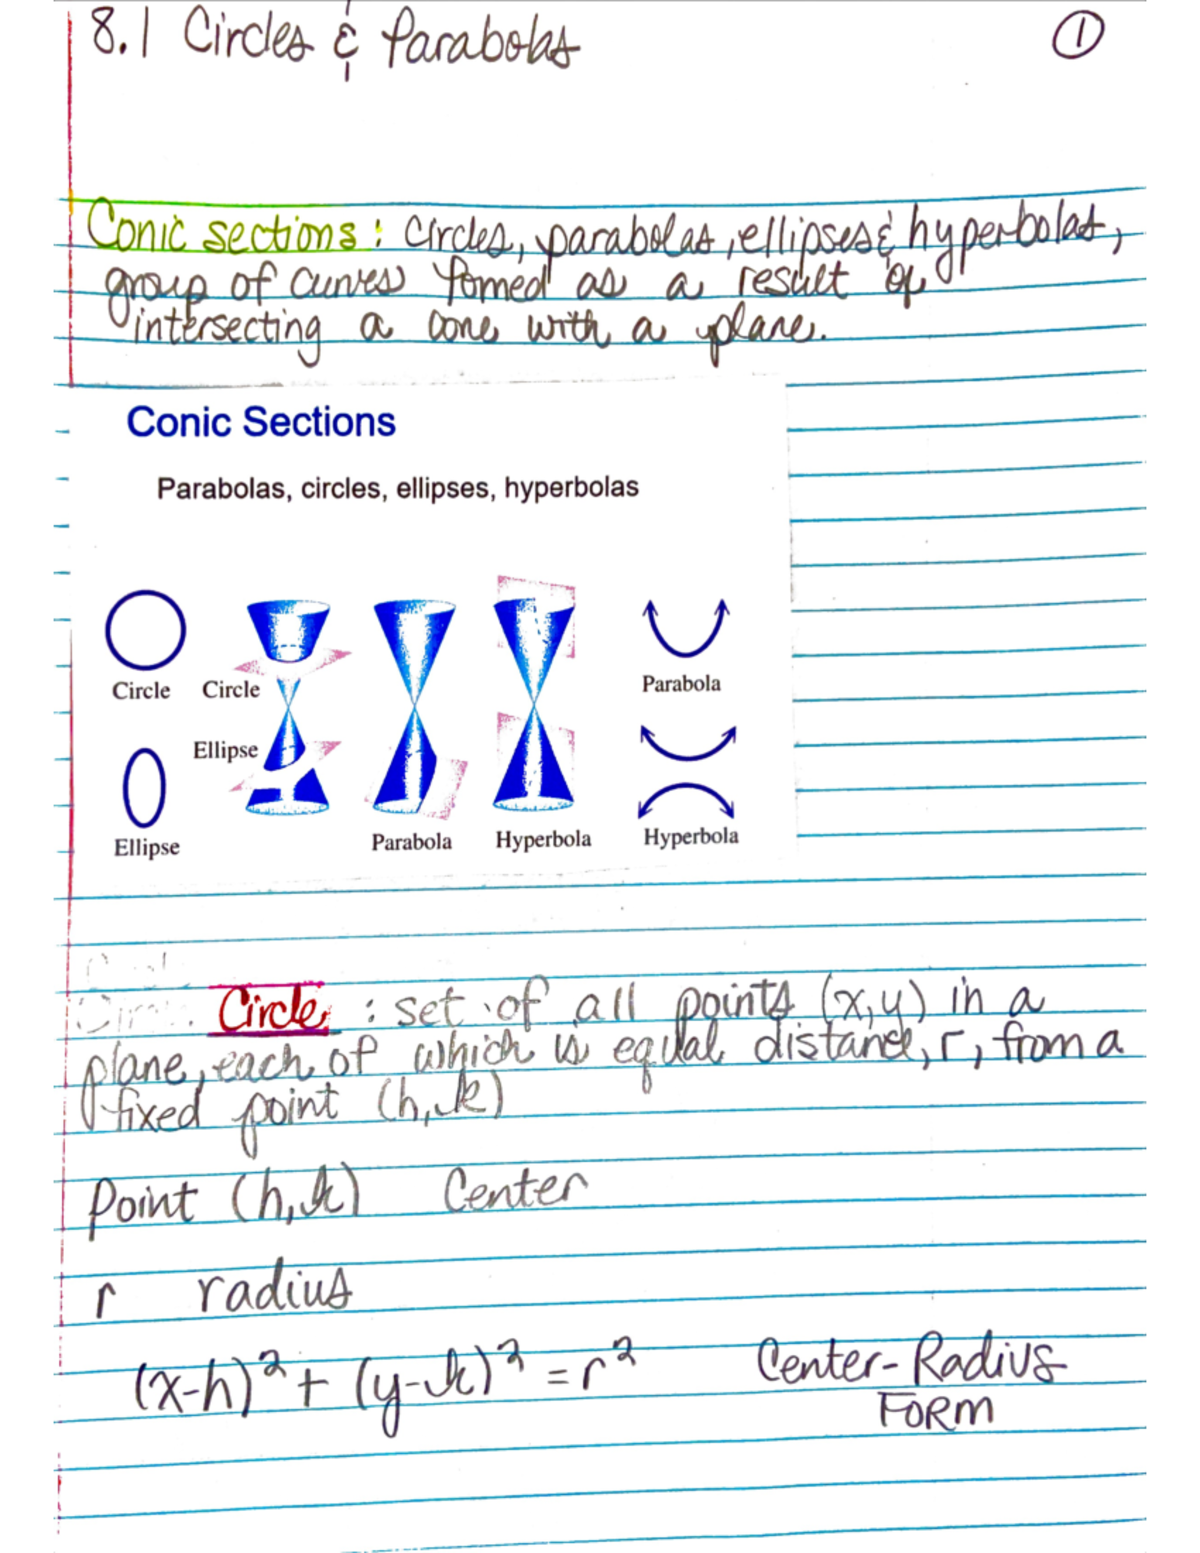 8.1 Circles & Parabolas
1
Conic sections: circles, parabolas, ellipses & hyperbolas,
group of curves fomed as a result of
intersecting a cone with a plane.
Conic Sections
Parabolas, circles, ellipses, hyperbolas
Circle
Circle
Parabola
Ellipse
Ellipse
Parabola
Hyperbola
Hyperbola
Circle: set of all points (x,y) in a
plane, each of which is equal distance, r, from a
fixed point (h,k)
Point (h,k) Center
r radius
(x-h)² + (y-k)² = r² Center-Radius
FORM